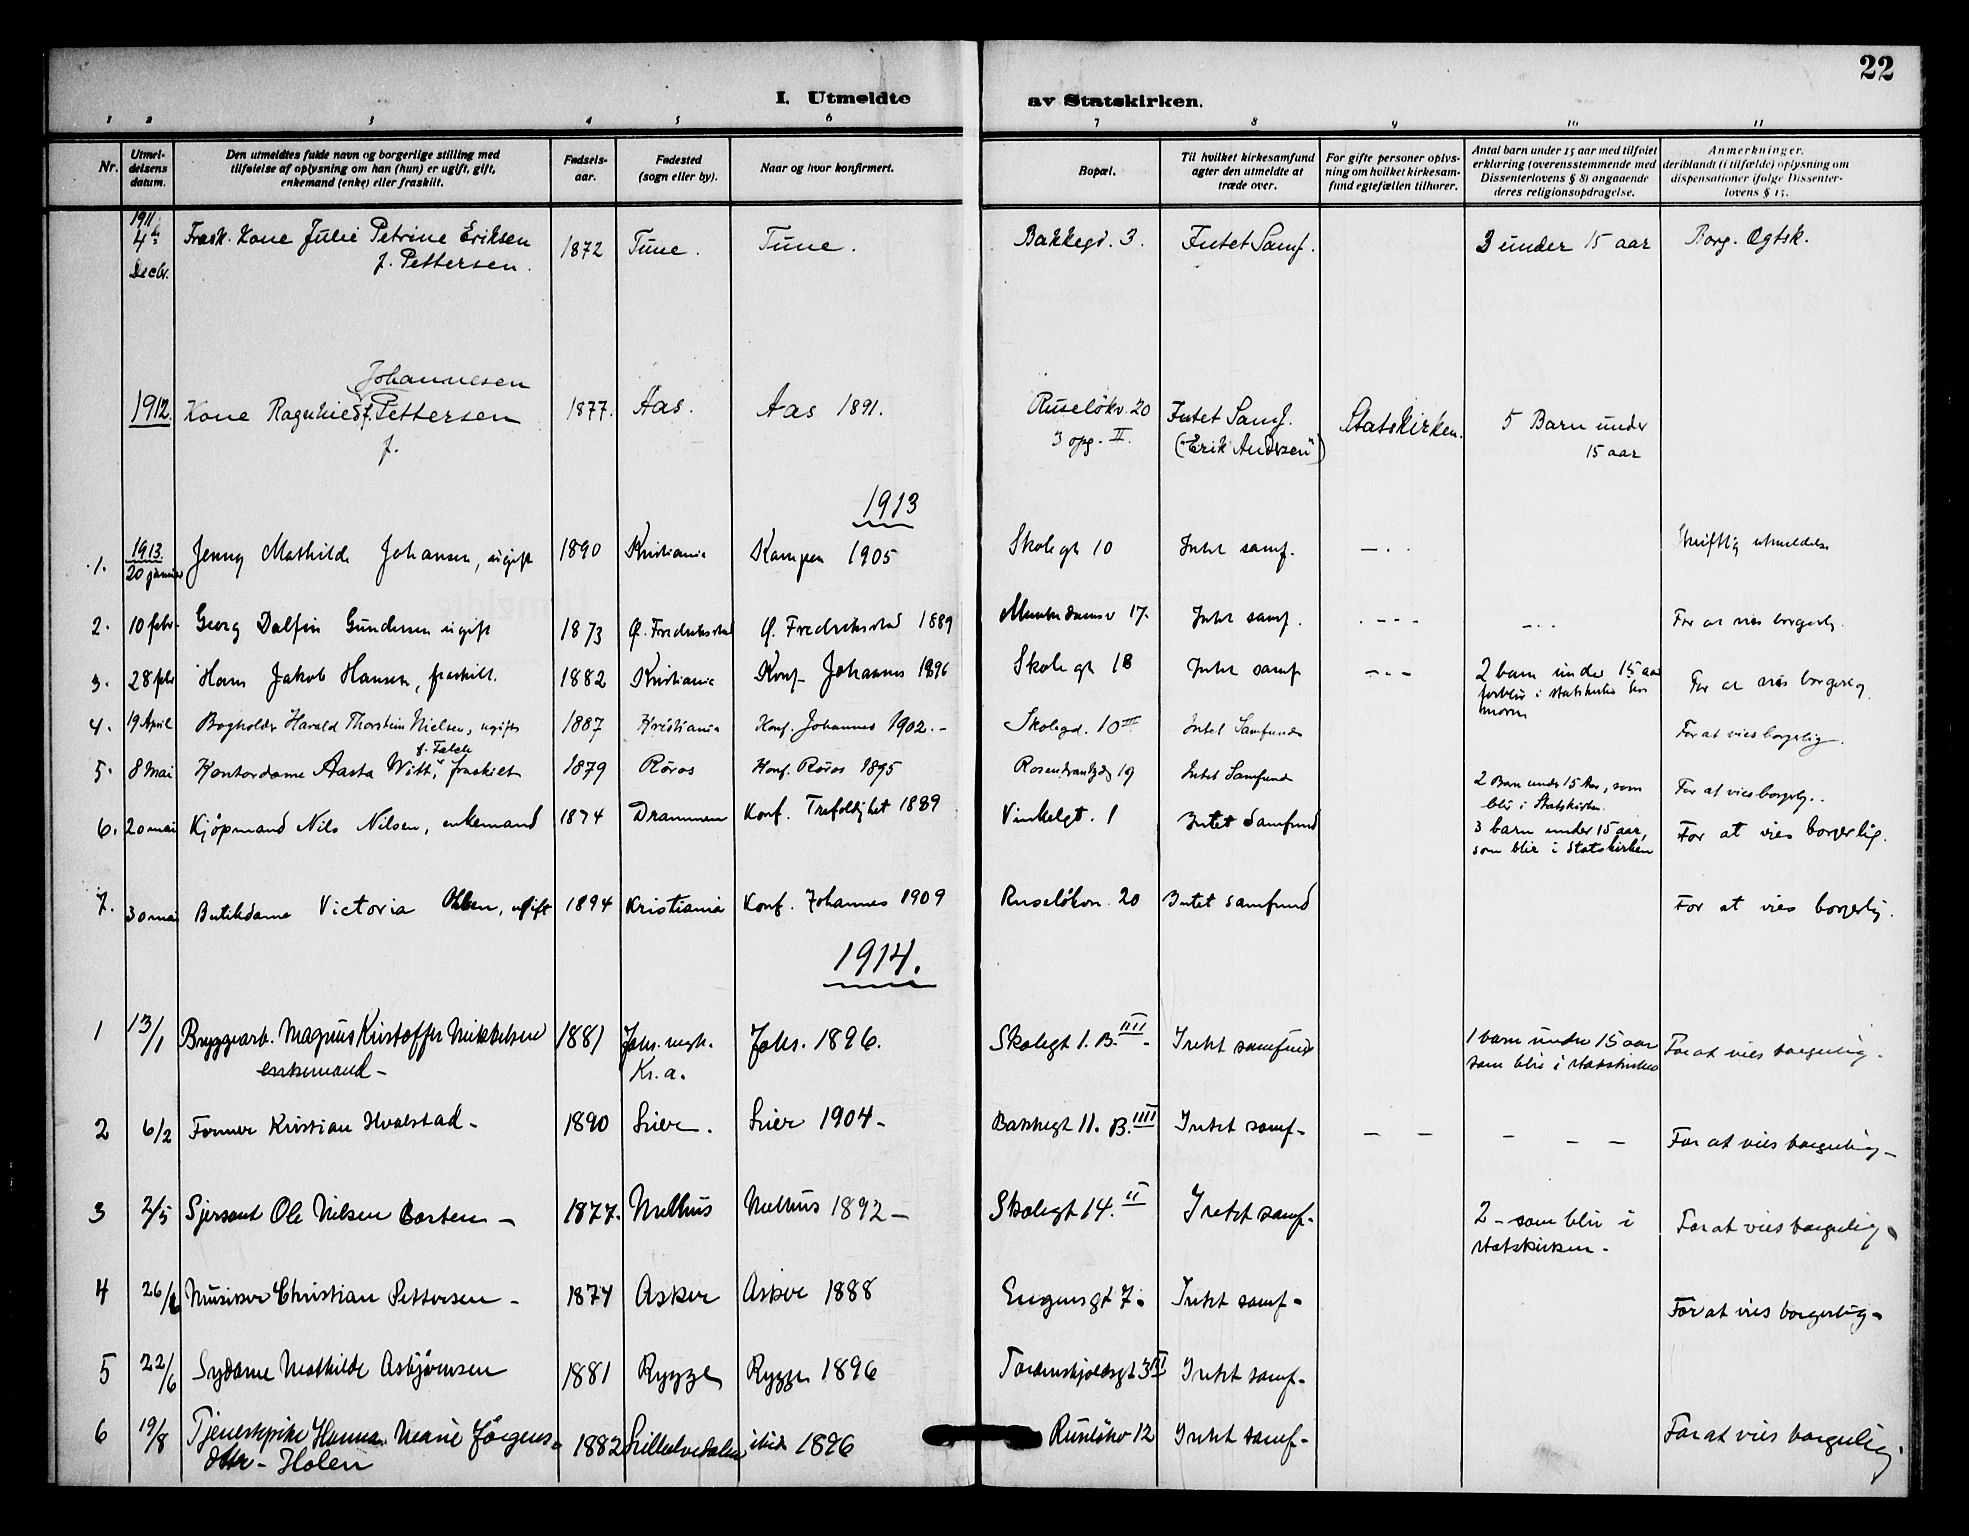 22
I. Utmeldte av Statskirken.
1 2 3 4 5 6 7 8 9 10 11
Nr.
Utmel-
delsens
datum.
Den utmeldtes fulde navn og borgerlige stilling med
tilføielse af oplysning om han (hun) er ugift, gift,
enkemand (enke) eller fraskilt.
Fødsels-
aar.
Fødested
(sogn eller by).
Naar og hvor konfirmert.
Bopæl.
Til hvilket kirkesamfund
agter den utmeldte at
træde over.
For gifte personer oplys-
ning om hvilket kirkesam-
fund egtefællen tilhører.
Antal barn under 15 aar med tilføiet
erklæring (overensstemmende med
Dissenterlovens § 8) angaaende
deres religionsopdragelse.
Anmerkninger,
deriblandt (i tilfælde) oplysning om
dispensationer ifølge Dissenter-
lovens § 15.
1911
4de Frask. Kone Julie Petrine Eriksen 1872 Tune. Tune. Bakkegd. 3. Intet Samf. 3 under 15 aar Borg. Ægtsk.
Decbr. f. Pettersen.
Johannesen
1912. Kone Ragnhild f. Pettersen 1877. Aas. Aas 1891. Ruseløkv. 20 Intet Samf. Statskirken. 5 Barn under
f. 3 opg. II. ("Erik Andersen") 15 aar
1913
1913
1. 20 januar Jenny Mathilde Johansen, ugift 1890 Kristiania Kampen 1905 Skolegt 10 Intet samf. - . . Skriftlig utmeldelse
2. 10 febr. Georg Dalfin Gundersen ugift 1873 Ø. Fredrikstad Ø. Fredrikstad 1889 Munkedamsv 17. Intet samf. . - - - - . . For at vies borgerlig.
3. 28 febr Hans Jakob Hansen, fraskilt. 1882 Kristiania Konf. Johannes 1896 Skolegt 18 Intet samf - - - 2 barn under 15 aar For at vies borgerlig.
forblir i statskirken hos
moren
4. 19 April Bogholder Harald Thorstein Nielsen, ugift 1887 Kristiania Konf. Johannes 1902.- Skolegd. 10 III Intet Samfund For at vies borgerlig.
f. Falck
5. 8 Mai Kontordame Aasta Witt, fraskilt 1879 Røros Konf. Røros 1895 Rosenkrantzgd 19 Intet Samfund 2 Barn under 15 Aar, som For at vies borgerlig..
blir i Statskirken.
6. 20 mai Kjøpmand Nils Nilsen, enkemand 1874 Drammen Konf. Trefoldighet 1889 Vinkelgt. 1 Intet Samfund 3 barn under 15 aar, For at vies borgerlig.
som blir i Statskirken
7. 30 mai Butikdame Victoria Olsen, ugift 1894 Kristiania Konf. Johannes 1909 Ruseløkvn. 20 Intet samfund For at vies borgerlig.
1914.
1 13/1 Bryggearb. Magnus Kristoffer Mikkelsen 1881 Johs. megh. Johs. 1896. Skolegt 1. B. IIII - Intet samfund 1 barn under 15 aar For at vies borgerlig -
enkemand - Kr.a. som blir i statskirken
2 6/2 Former Kristian Hvalstad - 1890 Lier. Lier 1904 - Bakkegt 11. B. IIII Intet samf - - - - - - For at vies borgerlig -
3 2/5 Sjersant Ole Nilsen Borten - 1877. Melhus Melhus 1892 - Skolegt 14. II Intet samf - 2 - som blir i For at vies borgerlig -
statskirken -
4 26/6 Musiker Christian Pettersen - 1874 Asker Asker 1888 Eugensgt 7. Intet samf - For at vies borgerlig -
5 22/6 Sydame Mathilde Asbjørnsen 1881 Rygge Rygge 1896 Tordenskjoldsgt 3 III Intet samf -
6 19/8 Tjenestpike Hanna Marie Jørgens- 1882 ibid 1896 Ruseløkv 12 Intet samf - For at vies borgerlig
dtr - Holen